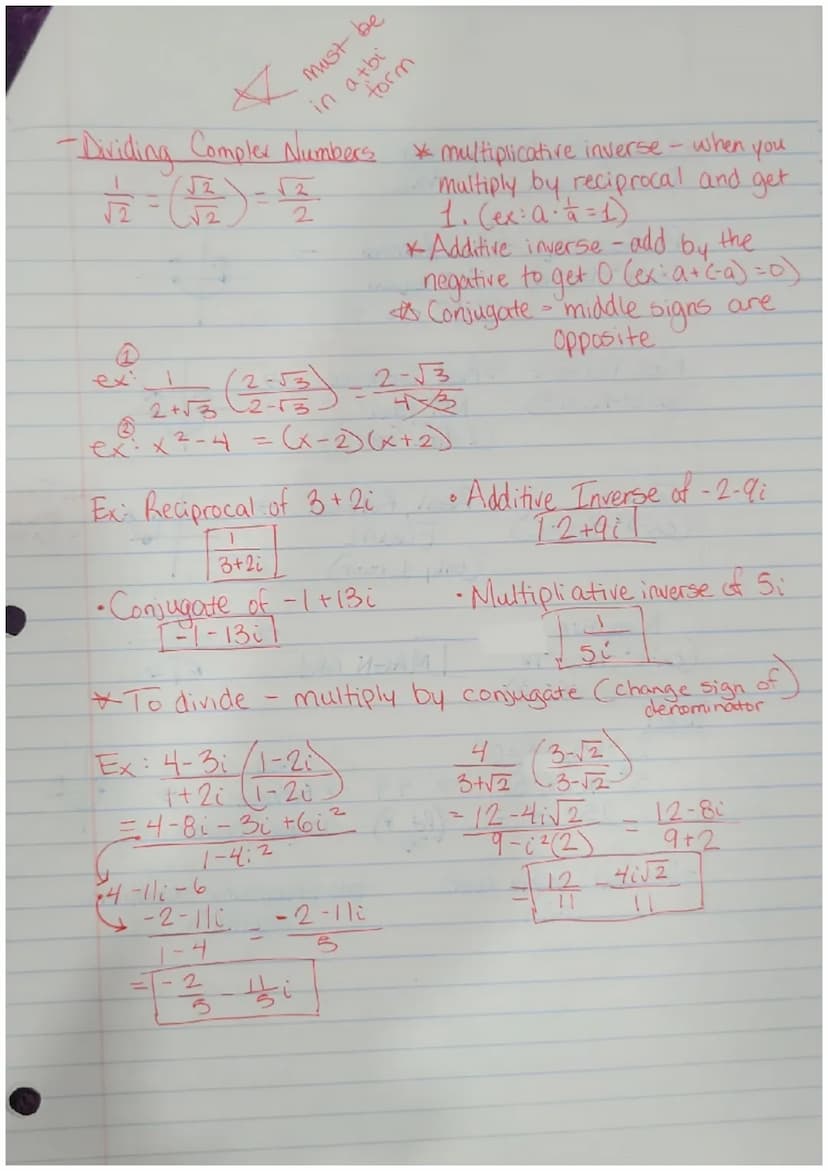 must be
in a+bi
form
- Dividing Complex Numbers
1/√2 = (√2/√2) = √2/2
* multiplicative inverse - when you
multiply by reciprocal and get
1. (ex: a · 1/a = 1)
* Additive inverse - add by the
negative to get 0 (ex: a + (-a) = 0)
☆ Conjugate - middle signs are
opposite
① ex: 1/(2+√3) ((2-√3)/(2-√3)) = (2-√3)/(4-3)
② ex: x² - 4 = (x-2)(x+2)
Ex: Reciprocal of 3+2i
1/(3+2i)
• Additive Inverse of -2-9i
2+9i
• Conjugate of -1+13i
-1-13i
• Multipliative inverse of 5i
1/5i
* To divide - multiply by conjugate (change sign of
denominator)
Ex: (4-3i)/(1+2i) ((1-2i)/(1-2i))
= (4-8i-3i+6i²)/(1-4i²)
4-11i-6
(-2-11i)/(1-4) = (-2-11i)/5
= -2/5 - 11/5 i
4/(3+√2) ((3-√2)/(3-√2))
= (12-4i√2)/(9-i²(2)) = (12-8i)/(9+2)
= 12/11 - 4i√2/11